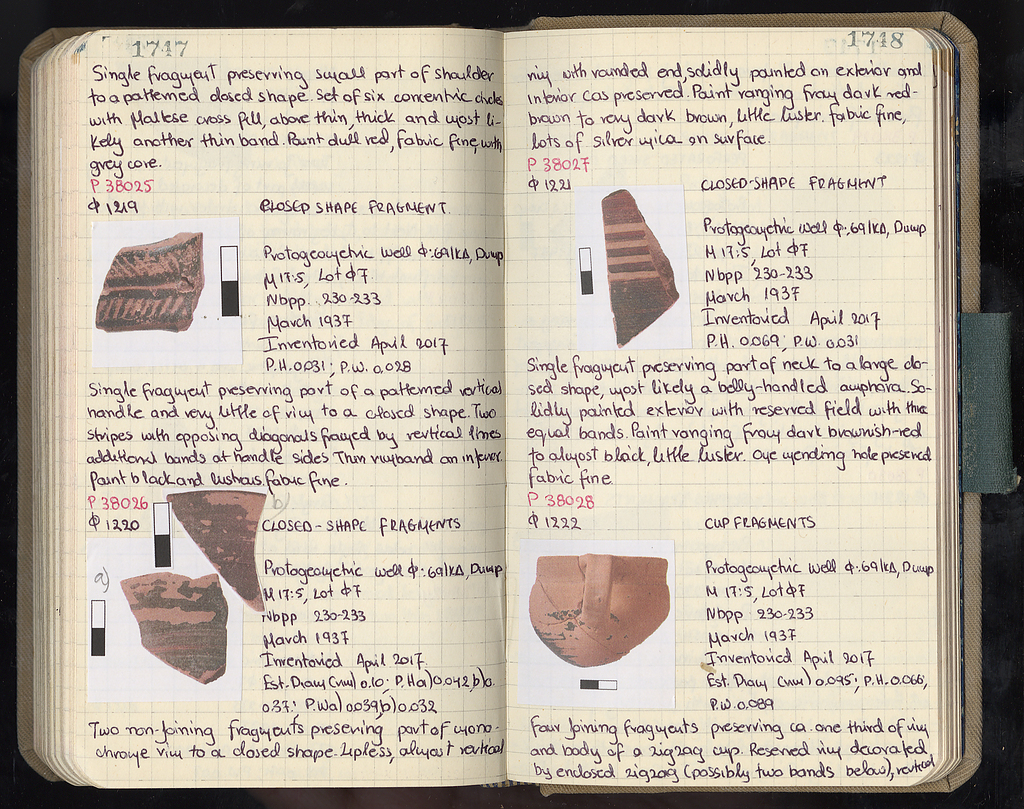 1747
Single fragment preserving small part of shoulder
to a patterned closed shape. Set of six concentric circles
with Maltese cross fill, above thin, thick and most li-
kely another thin band. Paint dull red, fabric fine, with
grey core.
P 38025
Φ 1219 CLOSED SHAPE FRAGMENT.
Protogeometric well Φ:69/ΚΔ, Dump
M 17:5, Lot Φ7
Nbpp. 230-233
March 1937
Inventoried April 2017
P.H. 0.031; P.W. 0.028
Single fragment preserving part of a patterned vertical
handle and very little of rim to a closed shape. Two
stripes with opposing diagonals framed by vertical lines
additional bands at handle sides Thin rimband on interior.
Paint black and lustrous, fabric fine.
P 38026
Φ 1220 CLOSED-SHAPE FRAGMENTS
b)
a)
Protogeometric well Φ:69/ΚΔ, Dump
M 17:5, Lot Φ7
Nbpp 230-233
March 1937
Inventoried April 2017.
Est. Diam (rim) 0.10; P.H a) 0.042, b) 0.
037; P.W a) 0.039, b) 0.032
Two non-joining fragments preserving part of mono-
chrome rim to a closed shape. Lipless, almost vertical
1748
rim with rounded end, solidly painted on exterior and
interior as preserved. Paint ranging from dark red-
brown to very dark brown, little luster. Fabric fine,
lots of silver mica on surface.
P 38027
Φ 1221 CLOSED-SHAPE FRAGMENT
Protogeometric well Φ:69/ΚΔ, Dump
M 17:5, Lot Φ7
Nbpp 230-233
March 1937
Inventoried April 2017
P.H. 0.069; P.W. 0.031
Single fragment preserving part of neck to a large clo-
sed shape, most likely a belly-handled amphora. So-
lidly painted exterior with reserved field with three
equal bands. Paint ranging from dark brownish-red
to almost black, little luster. One mending hole preserved
fabric fine
P 38028
Φ 1222 CUP FRAGMENTS
Protogeometric well Φ:69/ΚΔ, Dump
M 17:5, Lot Φ7
Nbpp 230-233
March 1937
Inventoried April 2017
Est. Diam (rim) 0.095; P.H. 0.066;
P.W. 0.089
Four joining fragments preserving ca. one third of rim
and body of a zigzag cup. Reserved rim decorated
by enclosed zigzag (possibly two bands below), vertical